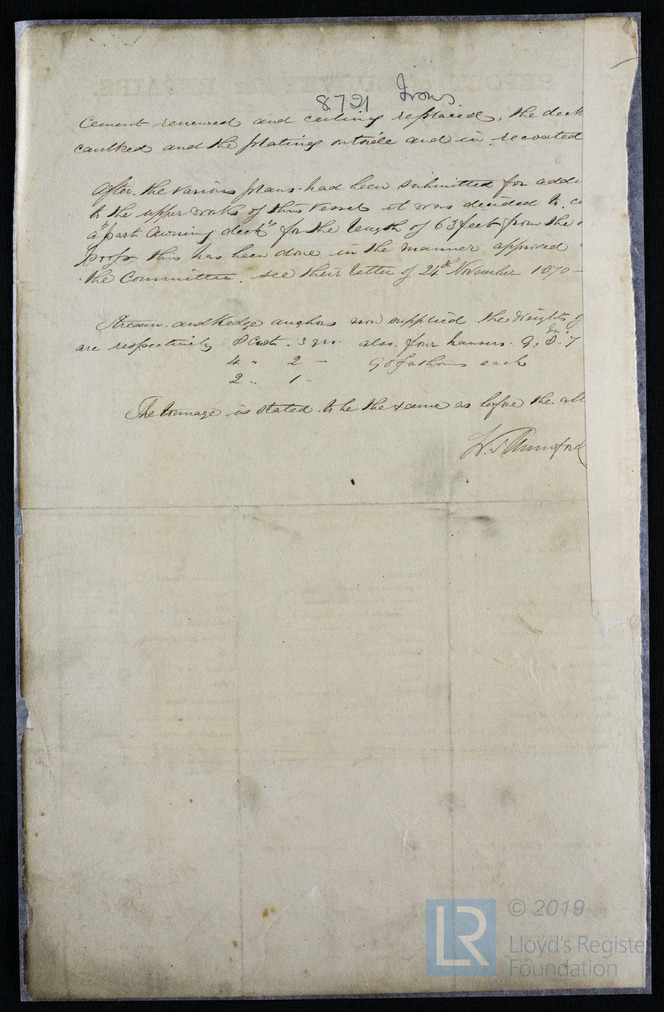 8721 Irons.
Cement renewed and ceiling replaced, the deck
caulked and the plating outside and in recoated
After the various plans had been submitted for addi
to the upper works of this vessel it was decided to c
a "part Awning deck" for the length of 63 feet from the
poop, this has been done in the manner approved
the Committee. see their letter of 24th November 1870 –
Stream and Kedge anchors now supplied the Weights of
are respectively 8 Cwt. 3 qrs also four hawsers. 9, 8, 7
4 " 2 – 90 fathoms each
2 " 1 –
The tonnage is stated to be the same as before the
REPORT SURVEY FOR REPAIRS.
© 2019
LR
Lloyd's Registe
Foundation